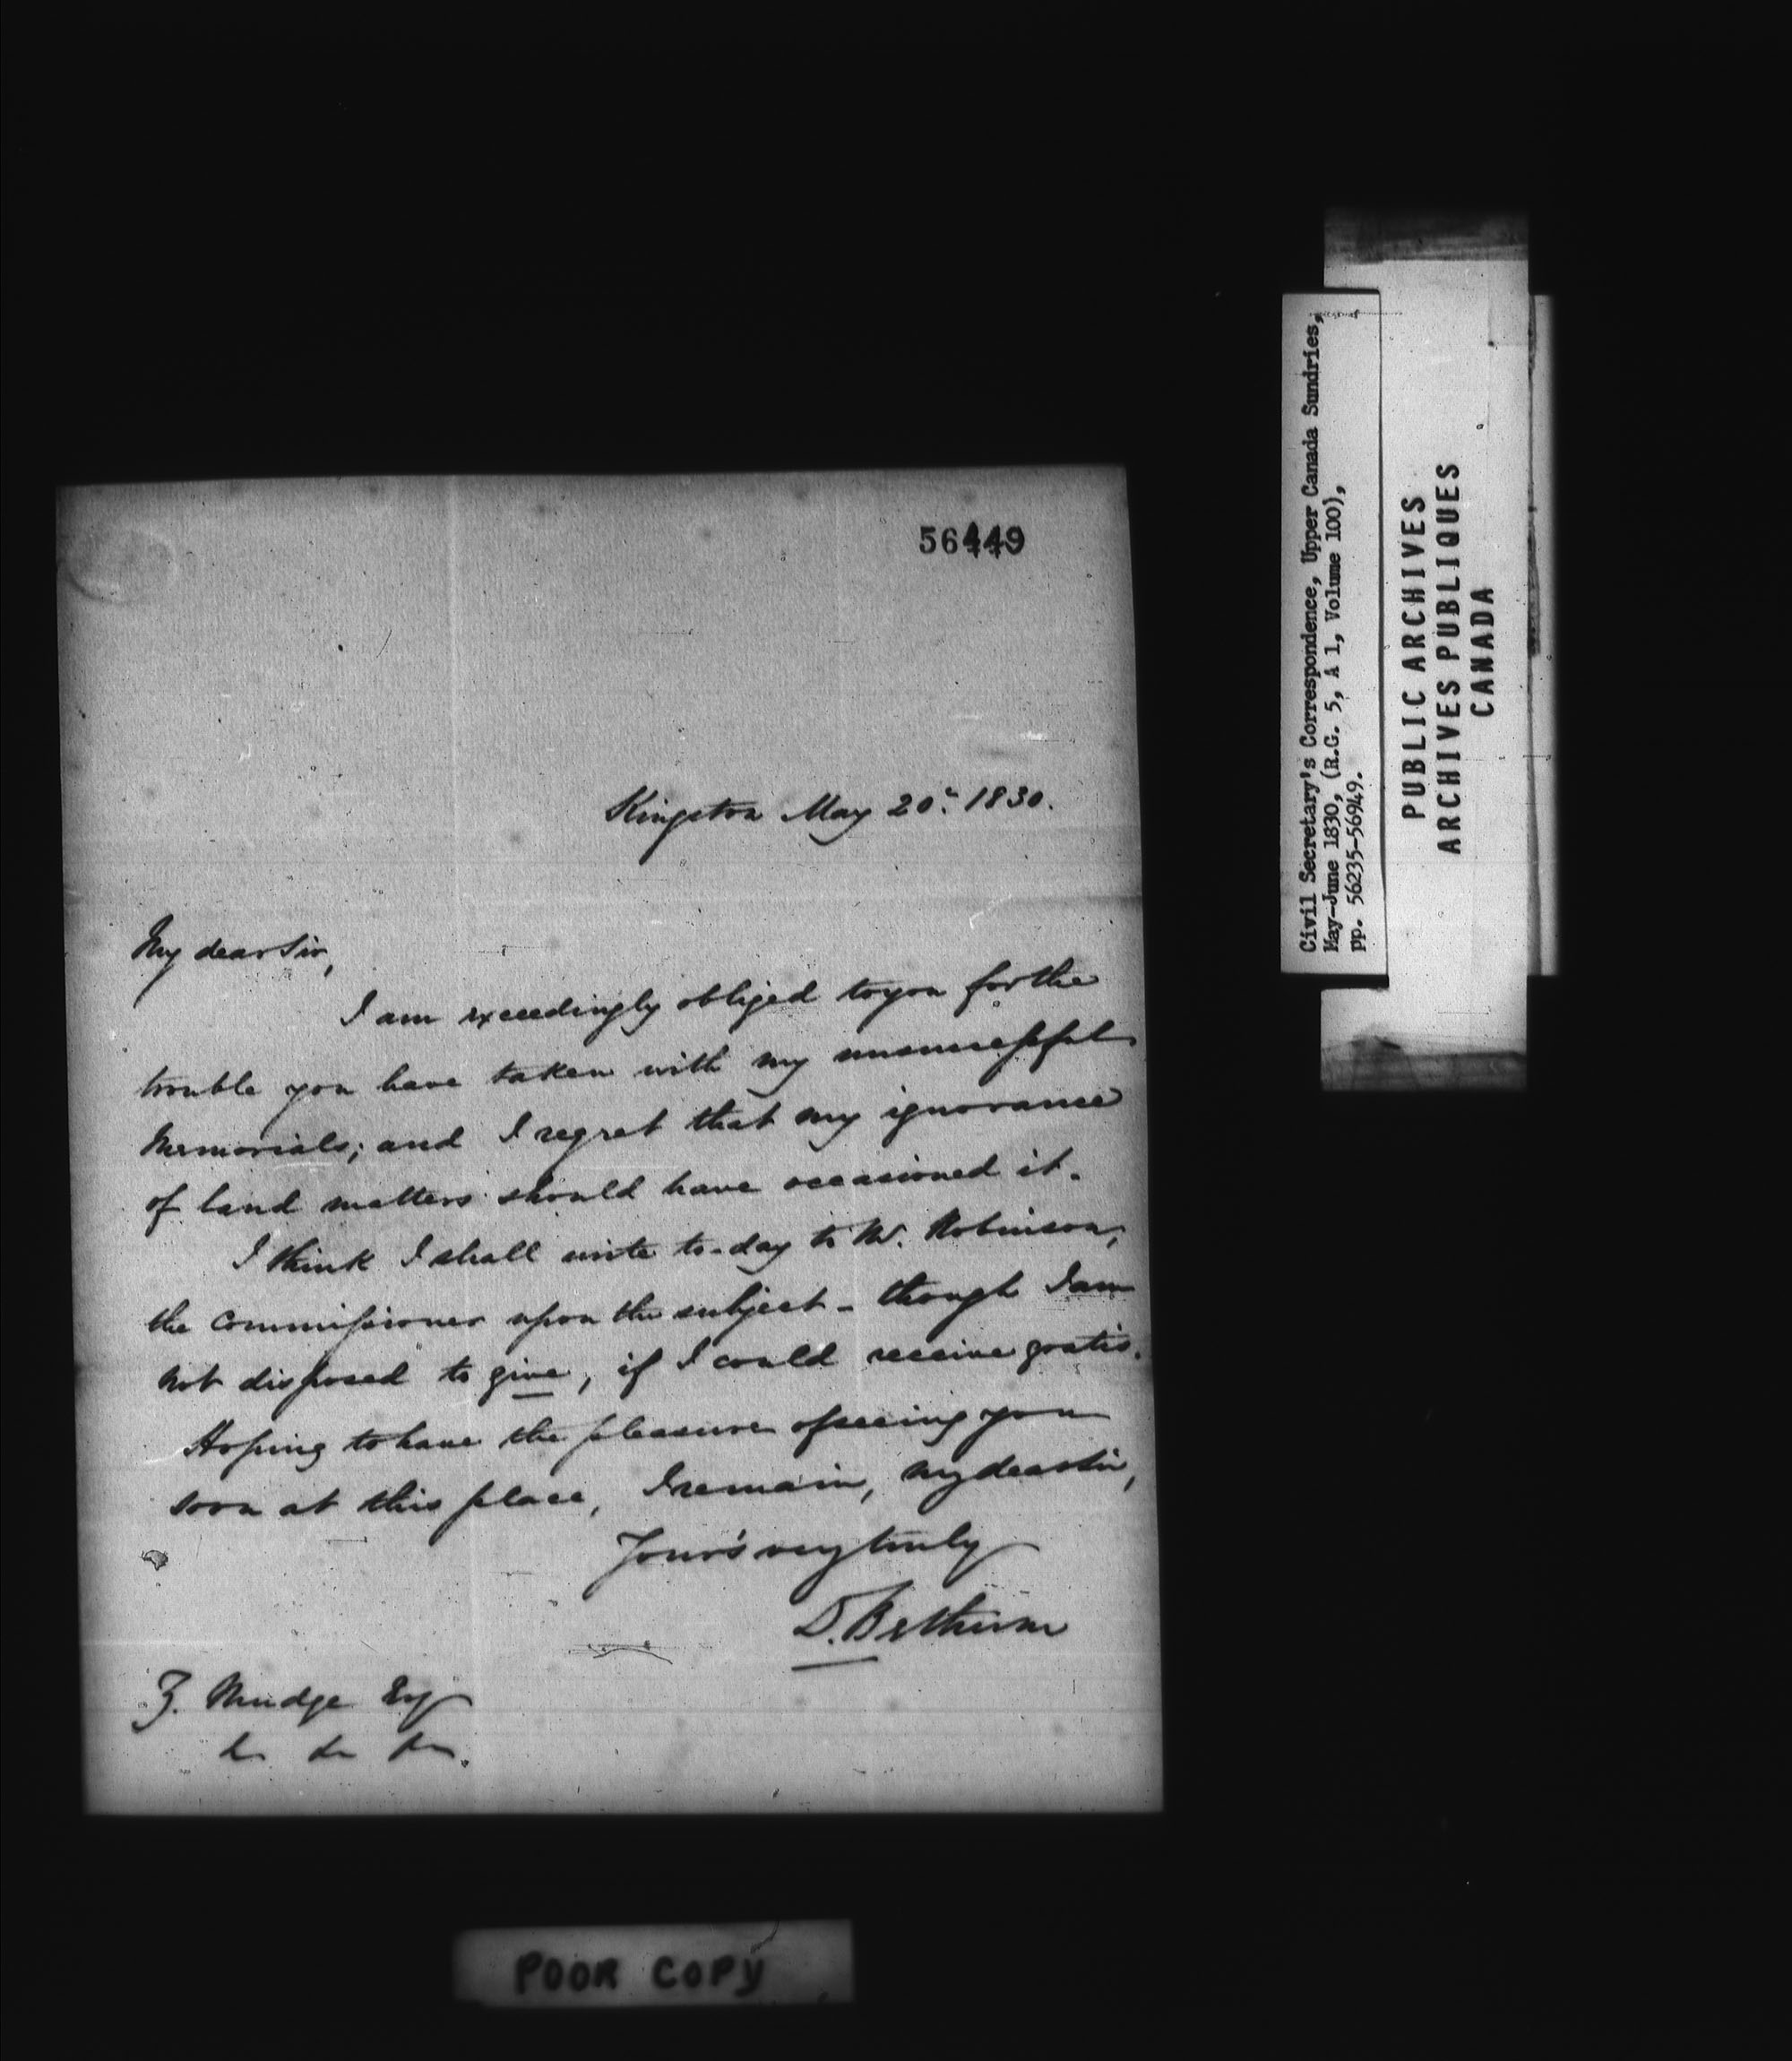 56449
Kingston May 20th. 1830.
My dear Sir,
I am exceedingly obliged to you for the
trouble you have taken with my unsuccessful
Memorials; and I regret that my ignorance
of land matters should have occasioned it.
I think I shall write to-day to Mr. Robinson,
the Commissioner upon the subject - though I am
not disposed to give, if I could receive gratis.
Hoping to have the pleasure of seeing you
soon at this place, I remain, my dear Sir,
Your's very truly
D. Bethune
Z. Mudge Esq
&c &c &c.
POOR COPY
Civil Secretary's Correspondence, Upper Canada Sundries,
May-June 1830, (R.G. 5, A 1, Volume 100),
pp. 56235-56949.
PUBLIC ARCHIVES
ARCHIVES PUBLIQUES
CANADA